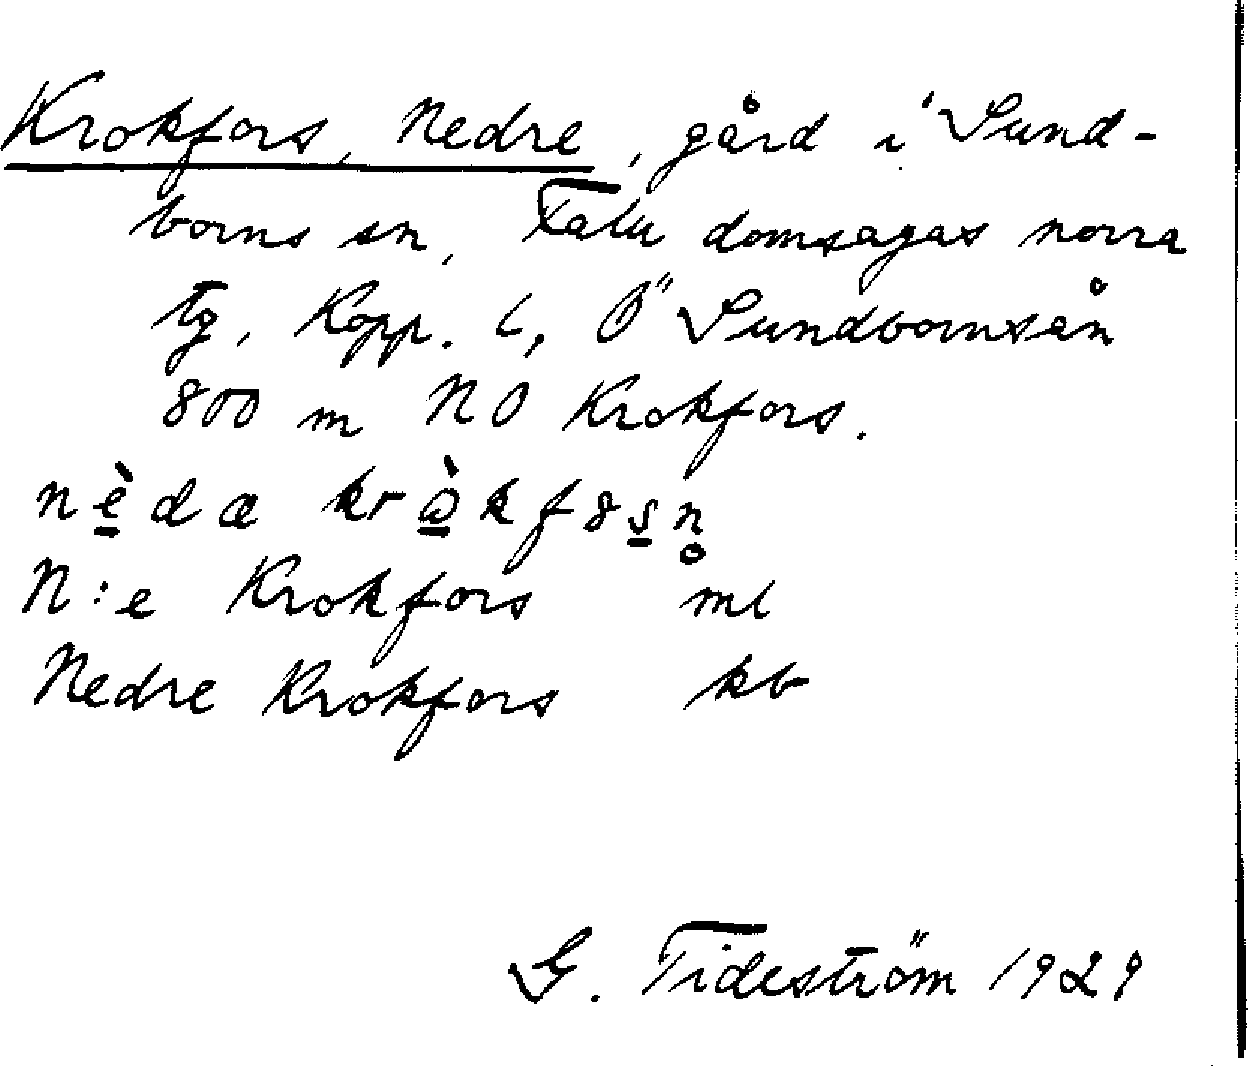 Krokfors, Nedre, gård i Sund-
borns sn, Falu domsagas norra
tg, Kopp. l, Ö Sundbornsån
800 m NO Krokfors.
N:e Krokfors ml
Nedre Krokfors kb
G. Tideström 1929